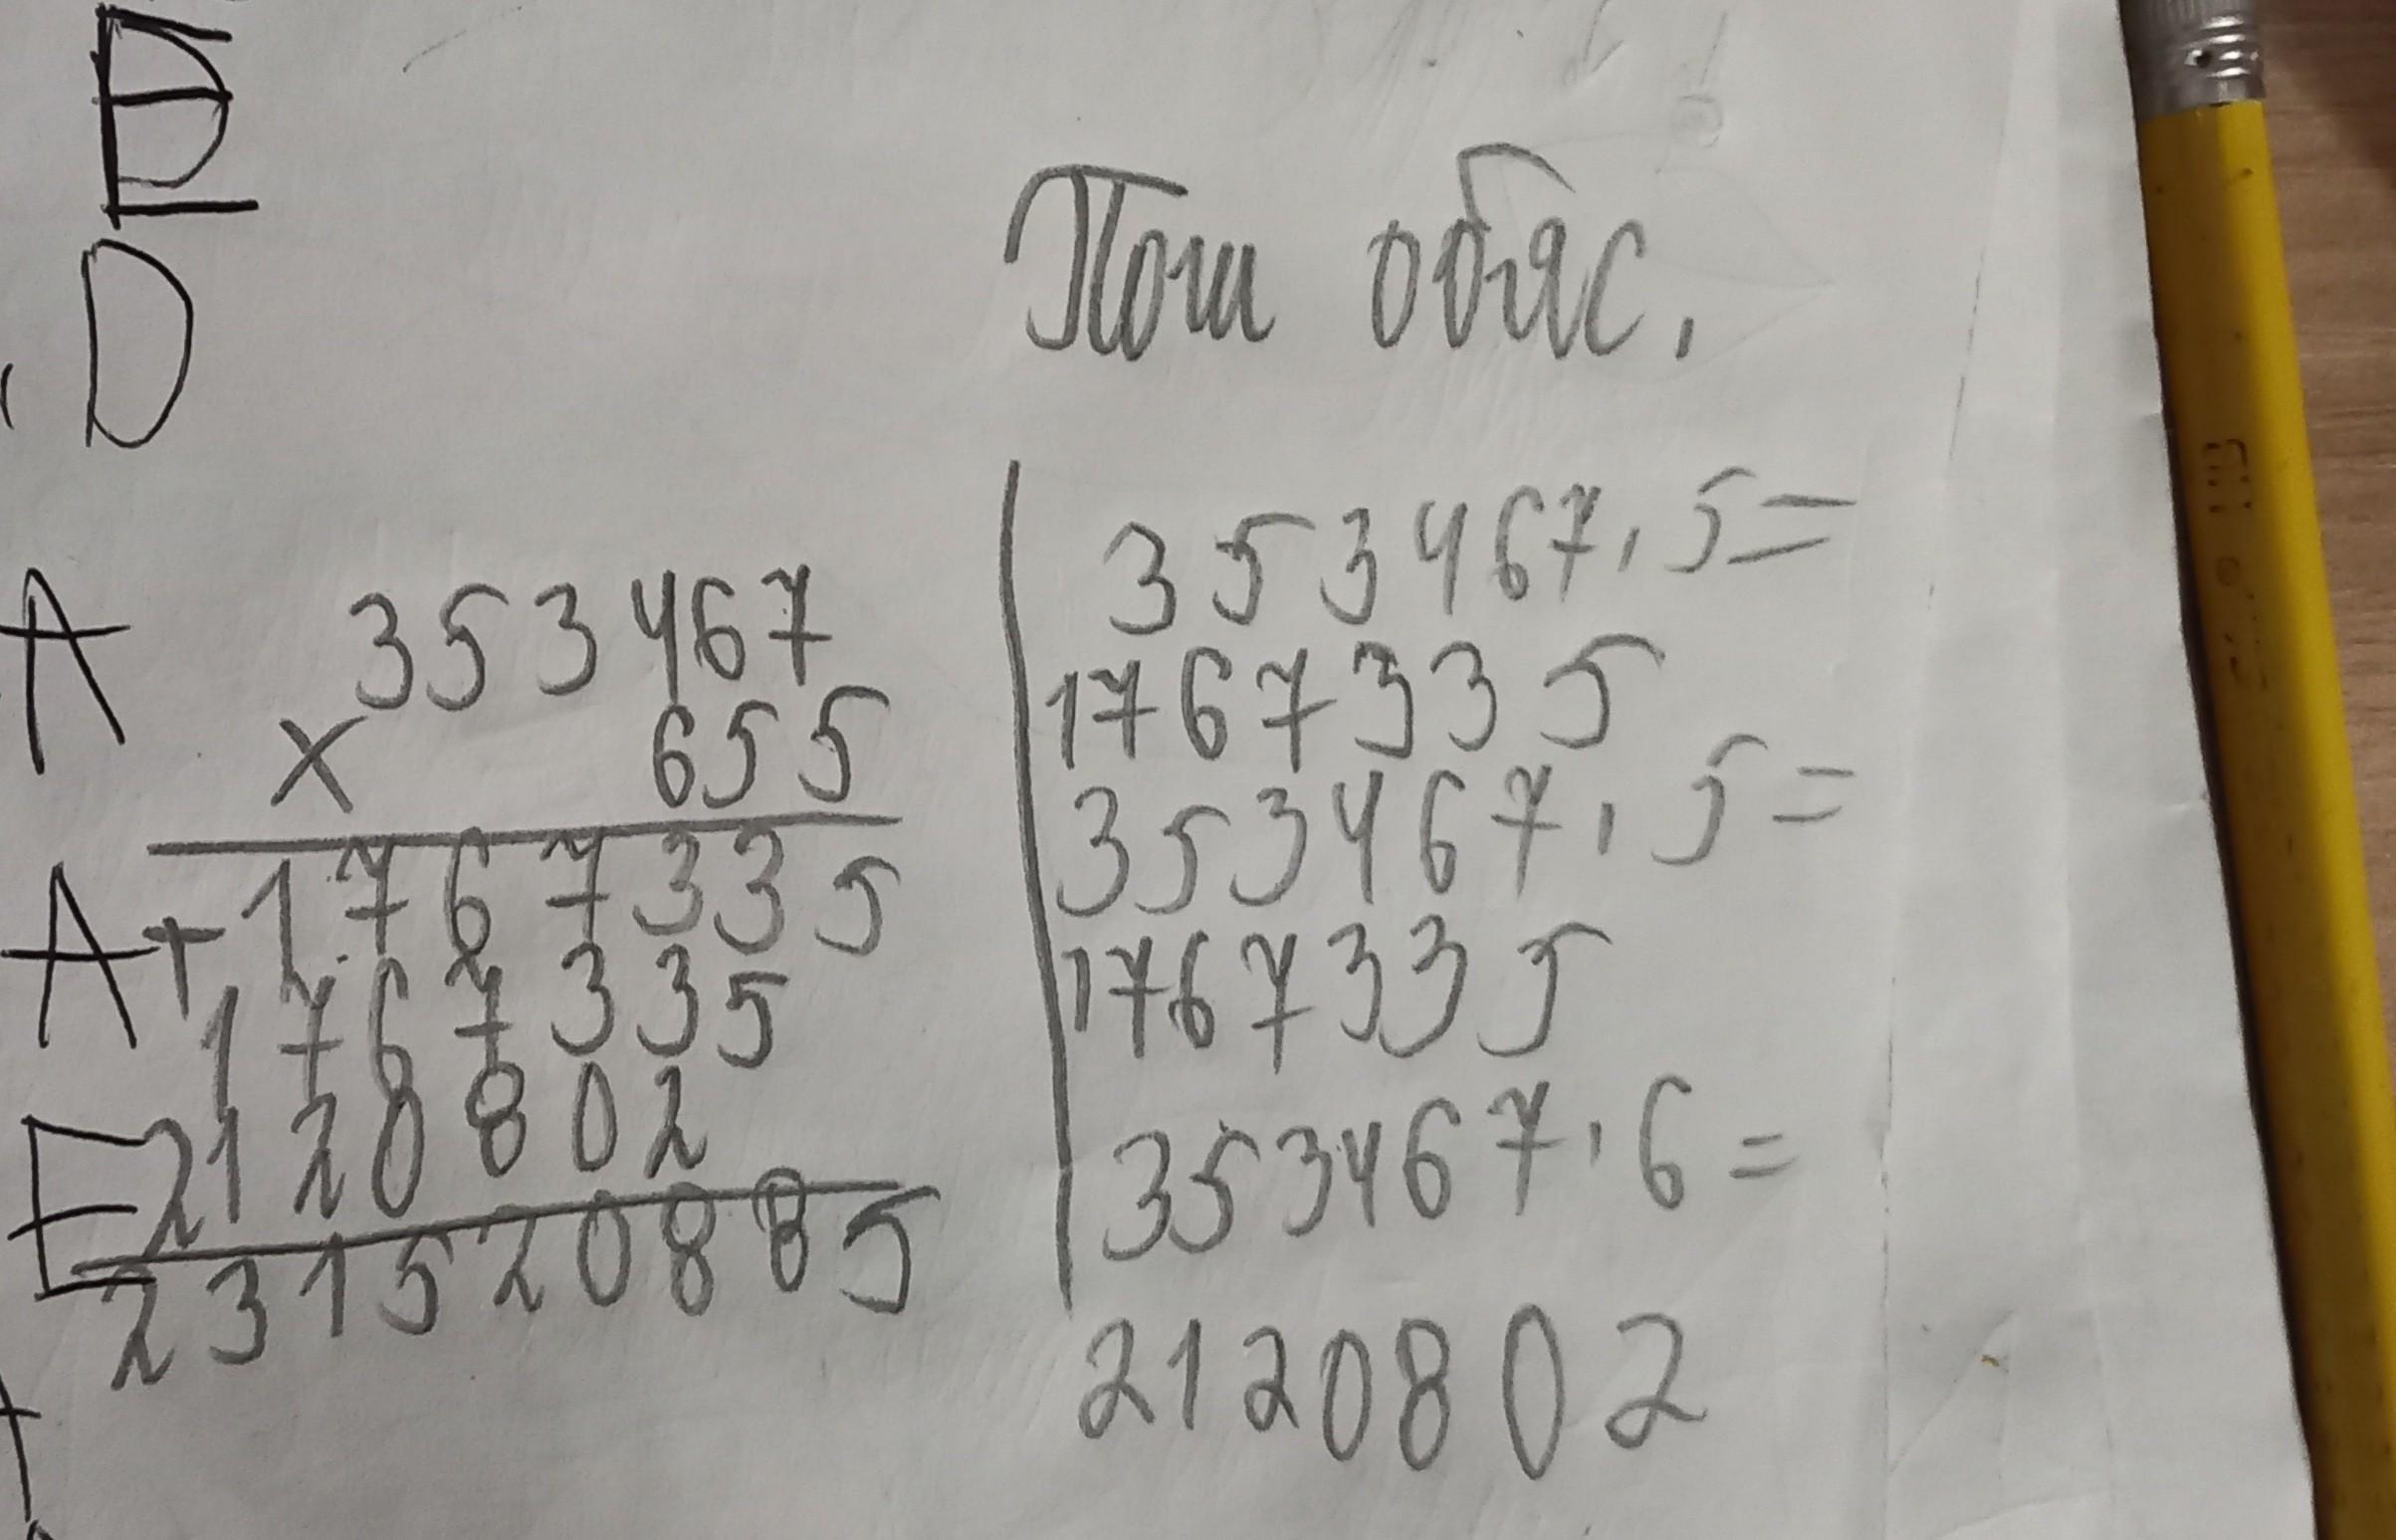 E
D
Пош обяс.
A
353467
× 655
A
+ 1767335
1767335
E
2120802
231520885
353467 · 5 =
1767335
353467 · 5 =
1767335
353467 · 6 =
2120802